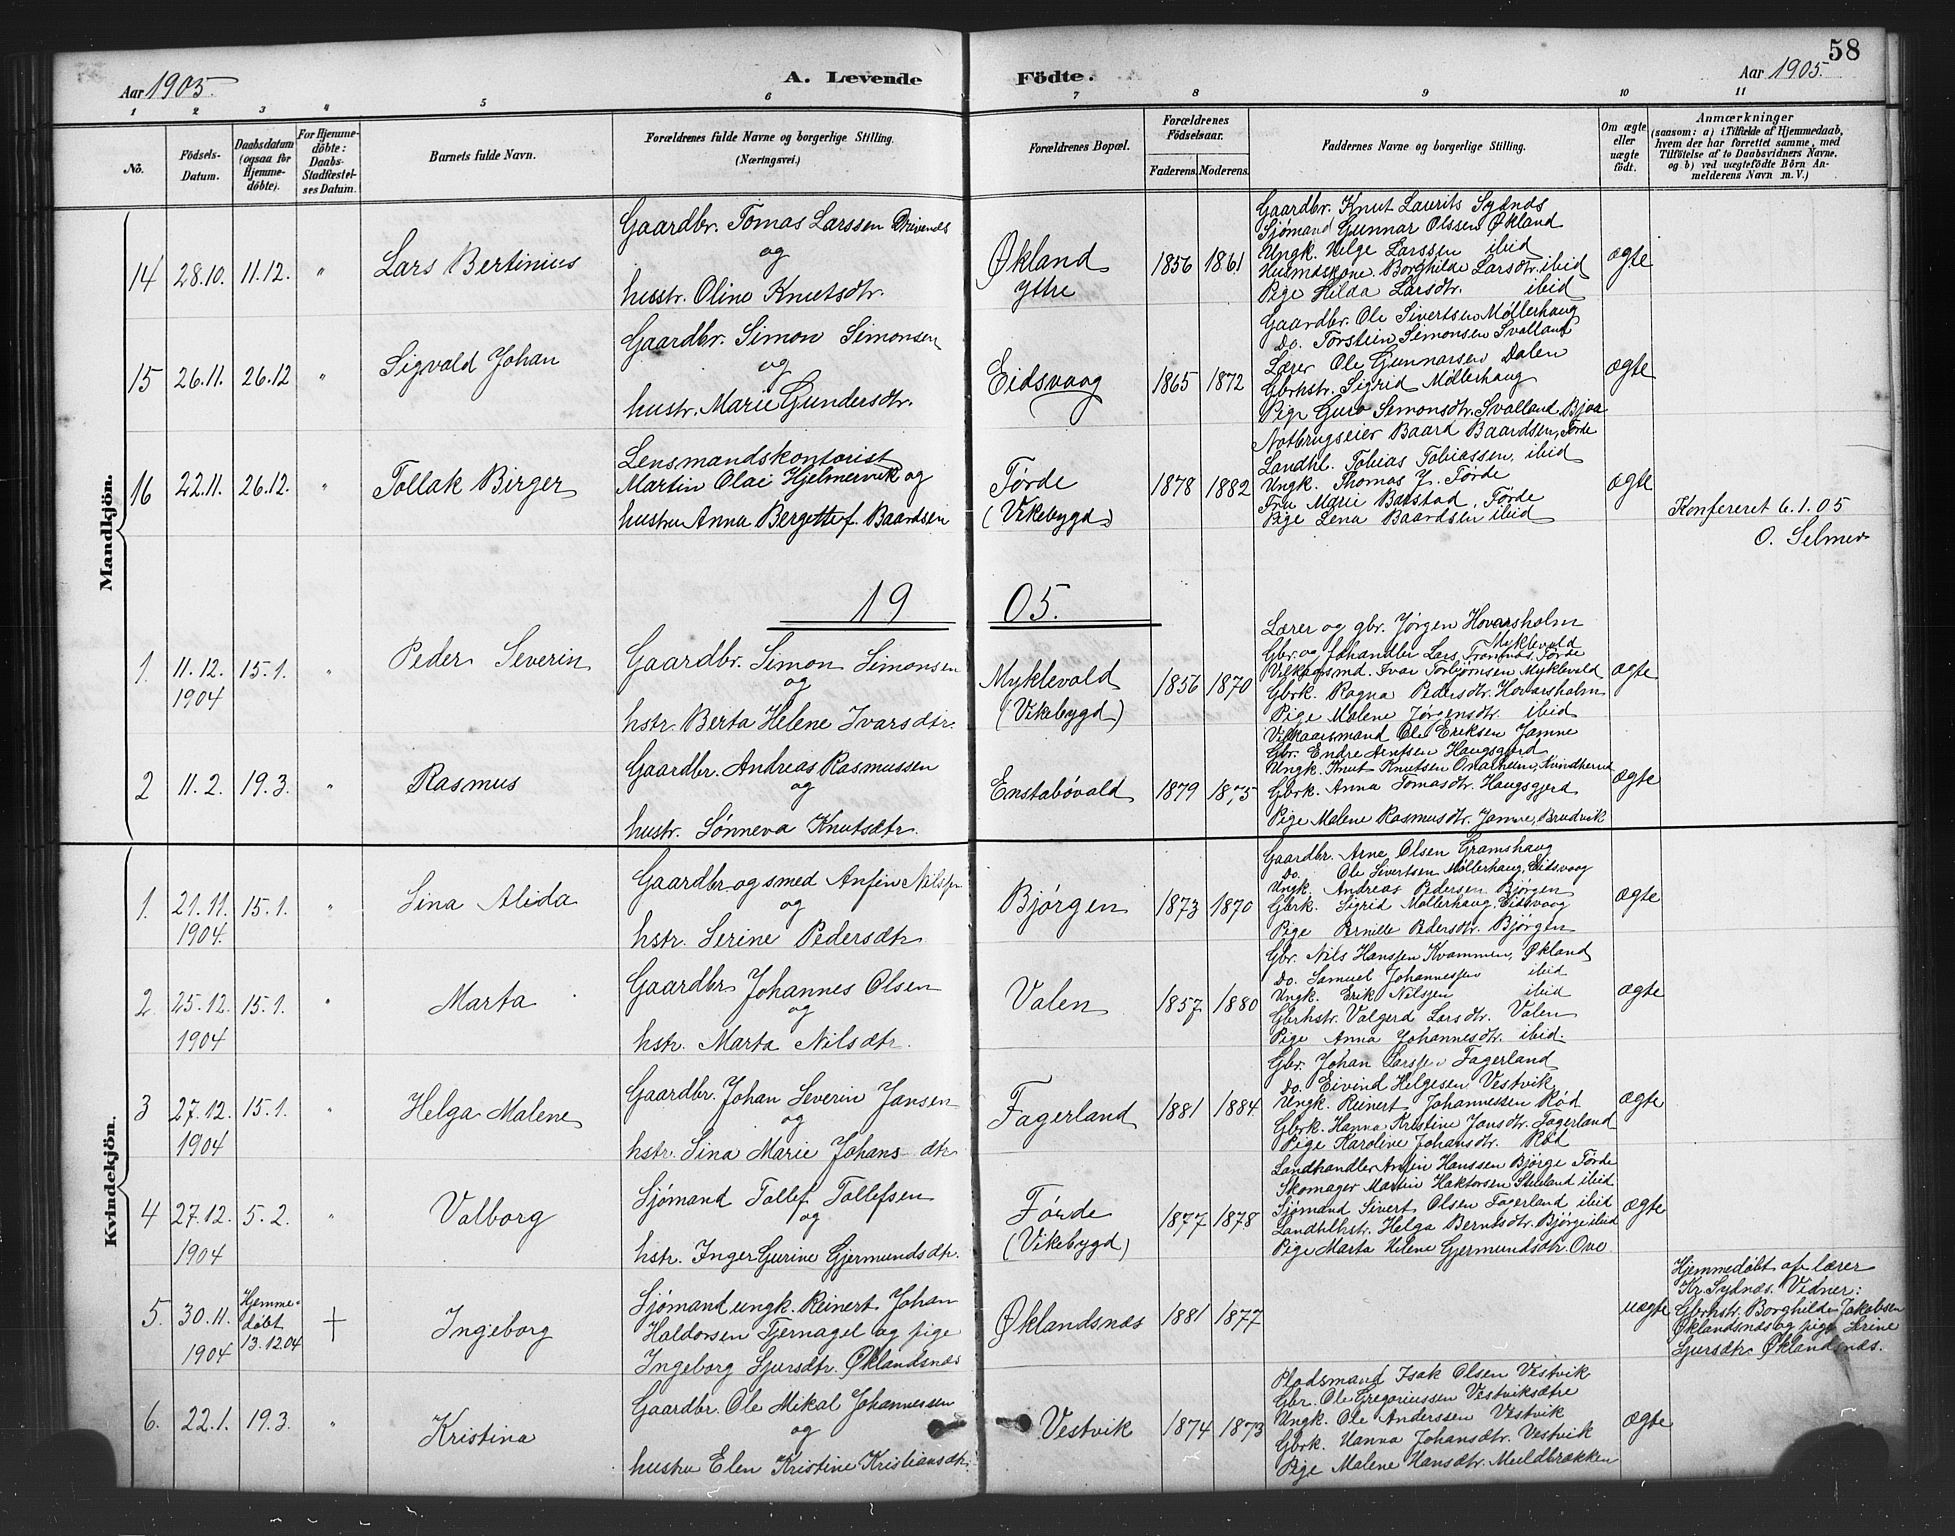 58
Aar 1905.
A. Levende Födte.
Aar 1905.
1 2 3 4 5 6 7 8 9 10 11
No.
Födsels-Datum.
Daabsdatum (ogsaa for Hjemme-döbte).
For Hjemme-döbte: Daabs-Stadfæstel-ses Datum.
Barnets fulde Navn.
Forældrenes fulde Navne og borgerlige Stilling.
(Næringsvei.)
Forældrenes Bopæl.
Forældrenes Födselsaar.
Faderens. Moderens.
Faddernes Navne og borgerlige Stilling.
Om ægte eller uægte födt.
Anmærkninger
(saasom: a) i Tilfælde af Hjemmedaab,
hvem der har forrettet samme, med
Tilföielse af to Daabsvidners Navne,
og b) ved uægtefödte Börn An-
melderens Navn m. V.)
Mandkjön.
14 28.10. 11.12. " Lars Bertinius
Gaardbr. Tomas Larssen
og
hustr. Oline Knutsdtr.
Økland
ytre
1856 1861
Gaardbr. Knut Laurits Sydnæs
Sjømand Gunnar Olssen Økland
Ungk. Helge Larssen ibid
Husmdskone. Borghilde Larsdtr. ibid
Pige Hilda Larsdtr. ibid
ægte
15 26.11. 26.12 " Sigvald Johan
Gaardbr. Simon Simonsen
og
hustr. Marie Gundersdtr.
Eidsvaag
1865 1872
Gaardbr. Ole Sivertsen Møllerhaug
Do. Torstein Simonsen Svalland
Lærer Ole Gunnarsen Dalen
Gbrhstr. Sigrid Møllerhaug
Pige Guro Simonsdtr. Svalland, Bjoa
ægte
16 22.11. 26.12. " Tollak Birger
Lensmandskontorist
Martin Olai Hjelmervik og
hustru Anna Bergette f. Baardsen
Førde
(Vikebygd)
1878 1882
Notbrugseier Baard Baardsen, Førde
Landhl. Tobias Tobiassen, ibid
Ungk. Thomas J. Førde
Fru Marie Baustad Førde
Pige Lena Baardsen ibid
ægte
Konfereret 6.1.05
O. Selmer
1905.
1. 11.12. 1904 15.1. " Peder Severin
Gaardbr. Simon Simonsen
og
hstr. Berta Helene Ivarsdtr.
Myklevold
(Vikebygd)
1856 1870
Lærer og gbr. Jørgen Hovarsholm
Myklevold
Gbr. og lohandler Lars Førde
Vilkaarsmd. Ivar Torbjørnsen Myklevold
Gbrk. Ragna Pedersdtr. Hovarsholm
Pige Malene Jørgensdtr. ibid
ægte
2 11.2. 19.3. " Rasmus
Gaardbr. Andreas Rasmussen
og
hustr. Sønneva Knutsdtr.
Enstabøvold
1879 1875
Vilkaarsmand Ole Eriksen Jamne
Gbr. Endre Arntsen Haugsgjerd
Ungk. Knut Knutsen Onarheim, Kvindherred
Gbrk. Anna Tomasdtr. Haugsgjerd
Pige Malene Rasmusdtr. Jamne, Brudvik
ægte
Kvindekjön.
1. 21.11. 1904. 15.1. " Lina Alida
Gaardbr. og smed Anfin Nilsen
og
hstr. Serine Pedersdtr.
Bjørgen
1873 1870
Gaardbr. Arne Olsen Gramshaug
Do. Ole Sivertsen Møllerhaug, Eidsvaag
Ungk. Andreas Pedersen Bjørgen
Gbrk. Sigrid Møllerhaug, Eidsvaag
Pige Pernille Pedersdtr. Bjørgen
ægte
2 25.12. 1904 15.1. " Marta
Gaardbr. Johannes Olsen
og
hstr. Marta Nilsdtr.
Valen
1857 1880
Gbr. Nils Hanssen Kvammen, Økland
Do. Samuel Johannessen ibid
Ungk. Erik Nilssen ibid
Gbrhstr. Valgerd Larsdtr. Valen
Pige Anna Johannesdtr. ibid.
ægte
3 27.12. 1904 15.1. " Helga Malene
Gaardbr. Johan Severin Jansen
og
hstr. Sina Marie Johansdtr.
Fagerland
1881 1884
Gbr. Johan Larssen Fagerland
Do. Eivind Helgesen Vestvik
Ungk. Reinert Johannessen Rød
Gbrk. Hanna Kristine Jansdtr. Fagerland
Pige Karoline Johansdtr. Rød
ægte
4 27.12. 1904 5.2. " Valborg
Sjømand Tollef Tollefsen
og
hstr. Inger Gurine Gjermundsdtr.
Førde
(Vikebygd)
1877 1878
Landhandler Anfin Hanssen Bjørge Førde
Skomager Martin Haktorsen Stuland ibid
Sjømand Sivert Olsen Fagerland ibid
Landhlhstr. Helga Berntsdtr. Bjørge ibid
Pige Marta Helene Gjermundsdtr. Ove
ægte
5. 30.11. 1904 Hjemme-døbt 13.12.04 + Ingeborg
Sjømand ungk. Reinert Johan
Haldorsen Tjernagel og pige
Ingeborg Sjursdtr. Øklandsnæs
Øklandsnæs
1881 1877
uægte
Hjemmedøbt af lærer
Kr. Sydnæs. Vidner:
Gbrhstr. Borghilde Jakobsen
Øklandsnæs og pige Serine
Sjursdtr. Øklandsnæs.
6. 22.1. 19.3. " Kristina
Gaardbr. Ole Mikal Johannessen
og
hustru Elen Kristine Kristiansdtr.
Vestvik
1874 1873
Pladsmand Isak Olsen Vestvik
Gbr. Ole Gregoriussen Vestviksætre
Ungk. Ole Anderssen Vestvik
Gbrk. Hanna Johansdtr. Vestvik
Pige Malene Hansdtr. Muldbrækken
ægte